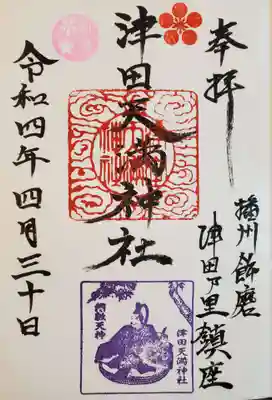 奉拝
播州飾磨
津田ノ里鎮座
津田天満神社
令和四年四月三十日
綱敷天神
津田天満神社